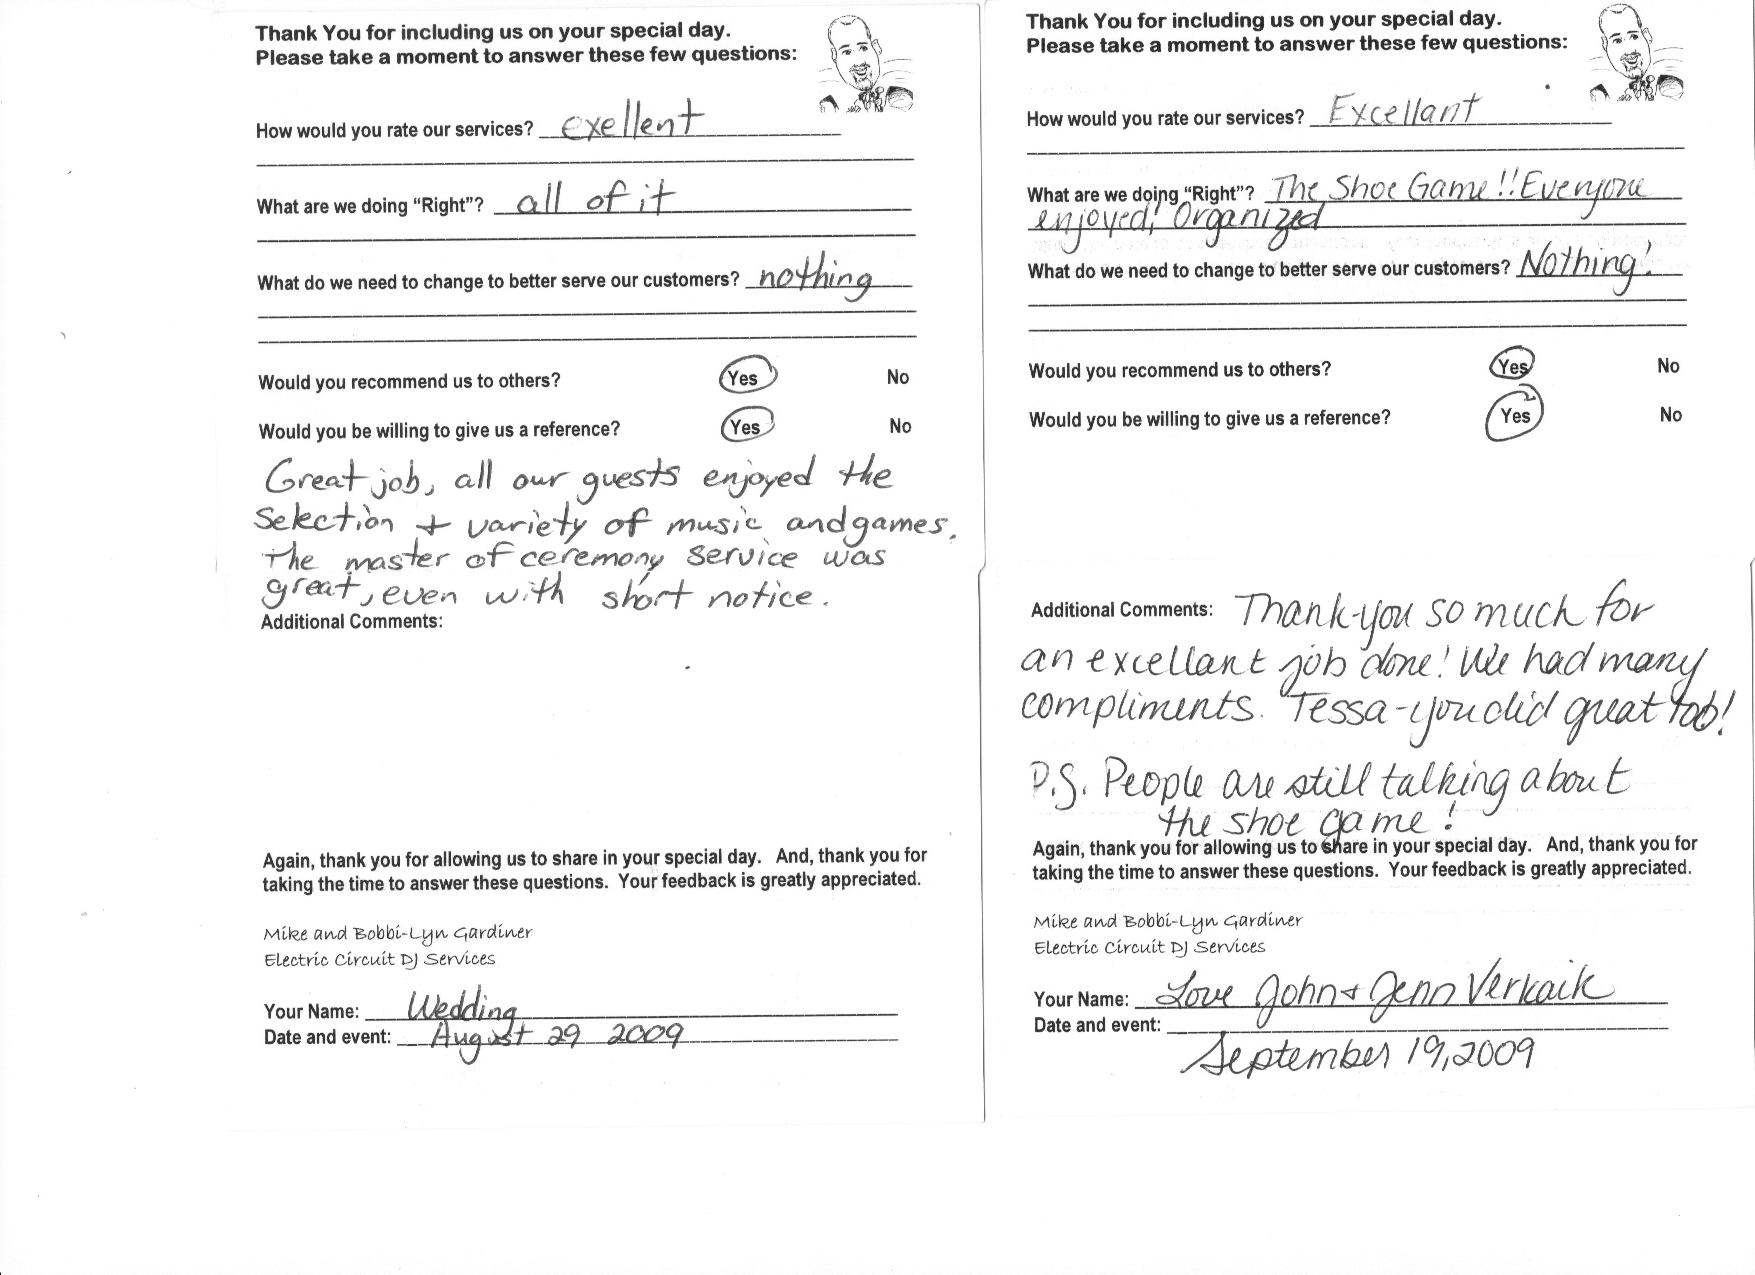 Thank You for including us on your special day.
Please take a moment to answer these few questions:
How would you rate our services? exellent
What are we doing "Right"? all of it
What do we need to change to better serve our customers? nothing
Would you recommend us to others? Yes No
Would you be willing to give us a reference? Yes No
Great job, all our guests enjoyed the
Selection + variety of music and games.
The master of ceremony service was
great, even with short notice.
Additional Comments:
Again, thank you for allowing us to share in your special day. And, thank you for
taking the time to answer these questions. Your feedback is greatly appreciated.
Mike and Bobbi-Lyn Gardiner
Electric Circuit DJ Services
Your Name: Wedding
Date and event: August 29 2009
Thank You for including us on your special day.
Please take a moment to answer these few questions:
How would you rate our services? Excellant
What are we doing "Right"? The Shoe Game!! Everyone
enjoyed! Organized
What do we need to change to better serve our customers? Nothing!
Would you recommend us to others? Yes No
Would you be willing to give us a reference? Yes No
Additional Comments: Thank-you so much for
an excellant job done! We had many
compliments. Tessa-you did great too!
P.S. People are still talking about
the shoe game!
Again, thank you for allowing us to share in your special day. And, thank you for
taking the time to answer these questions. Your feedback is greatly appreciated.
Mike and Bobbi-Lyn Gardiner
Electric Circuit DJ Services
Your Name: Love John + Jenn Verkaik
Date and event:
September 19, 2009